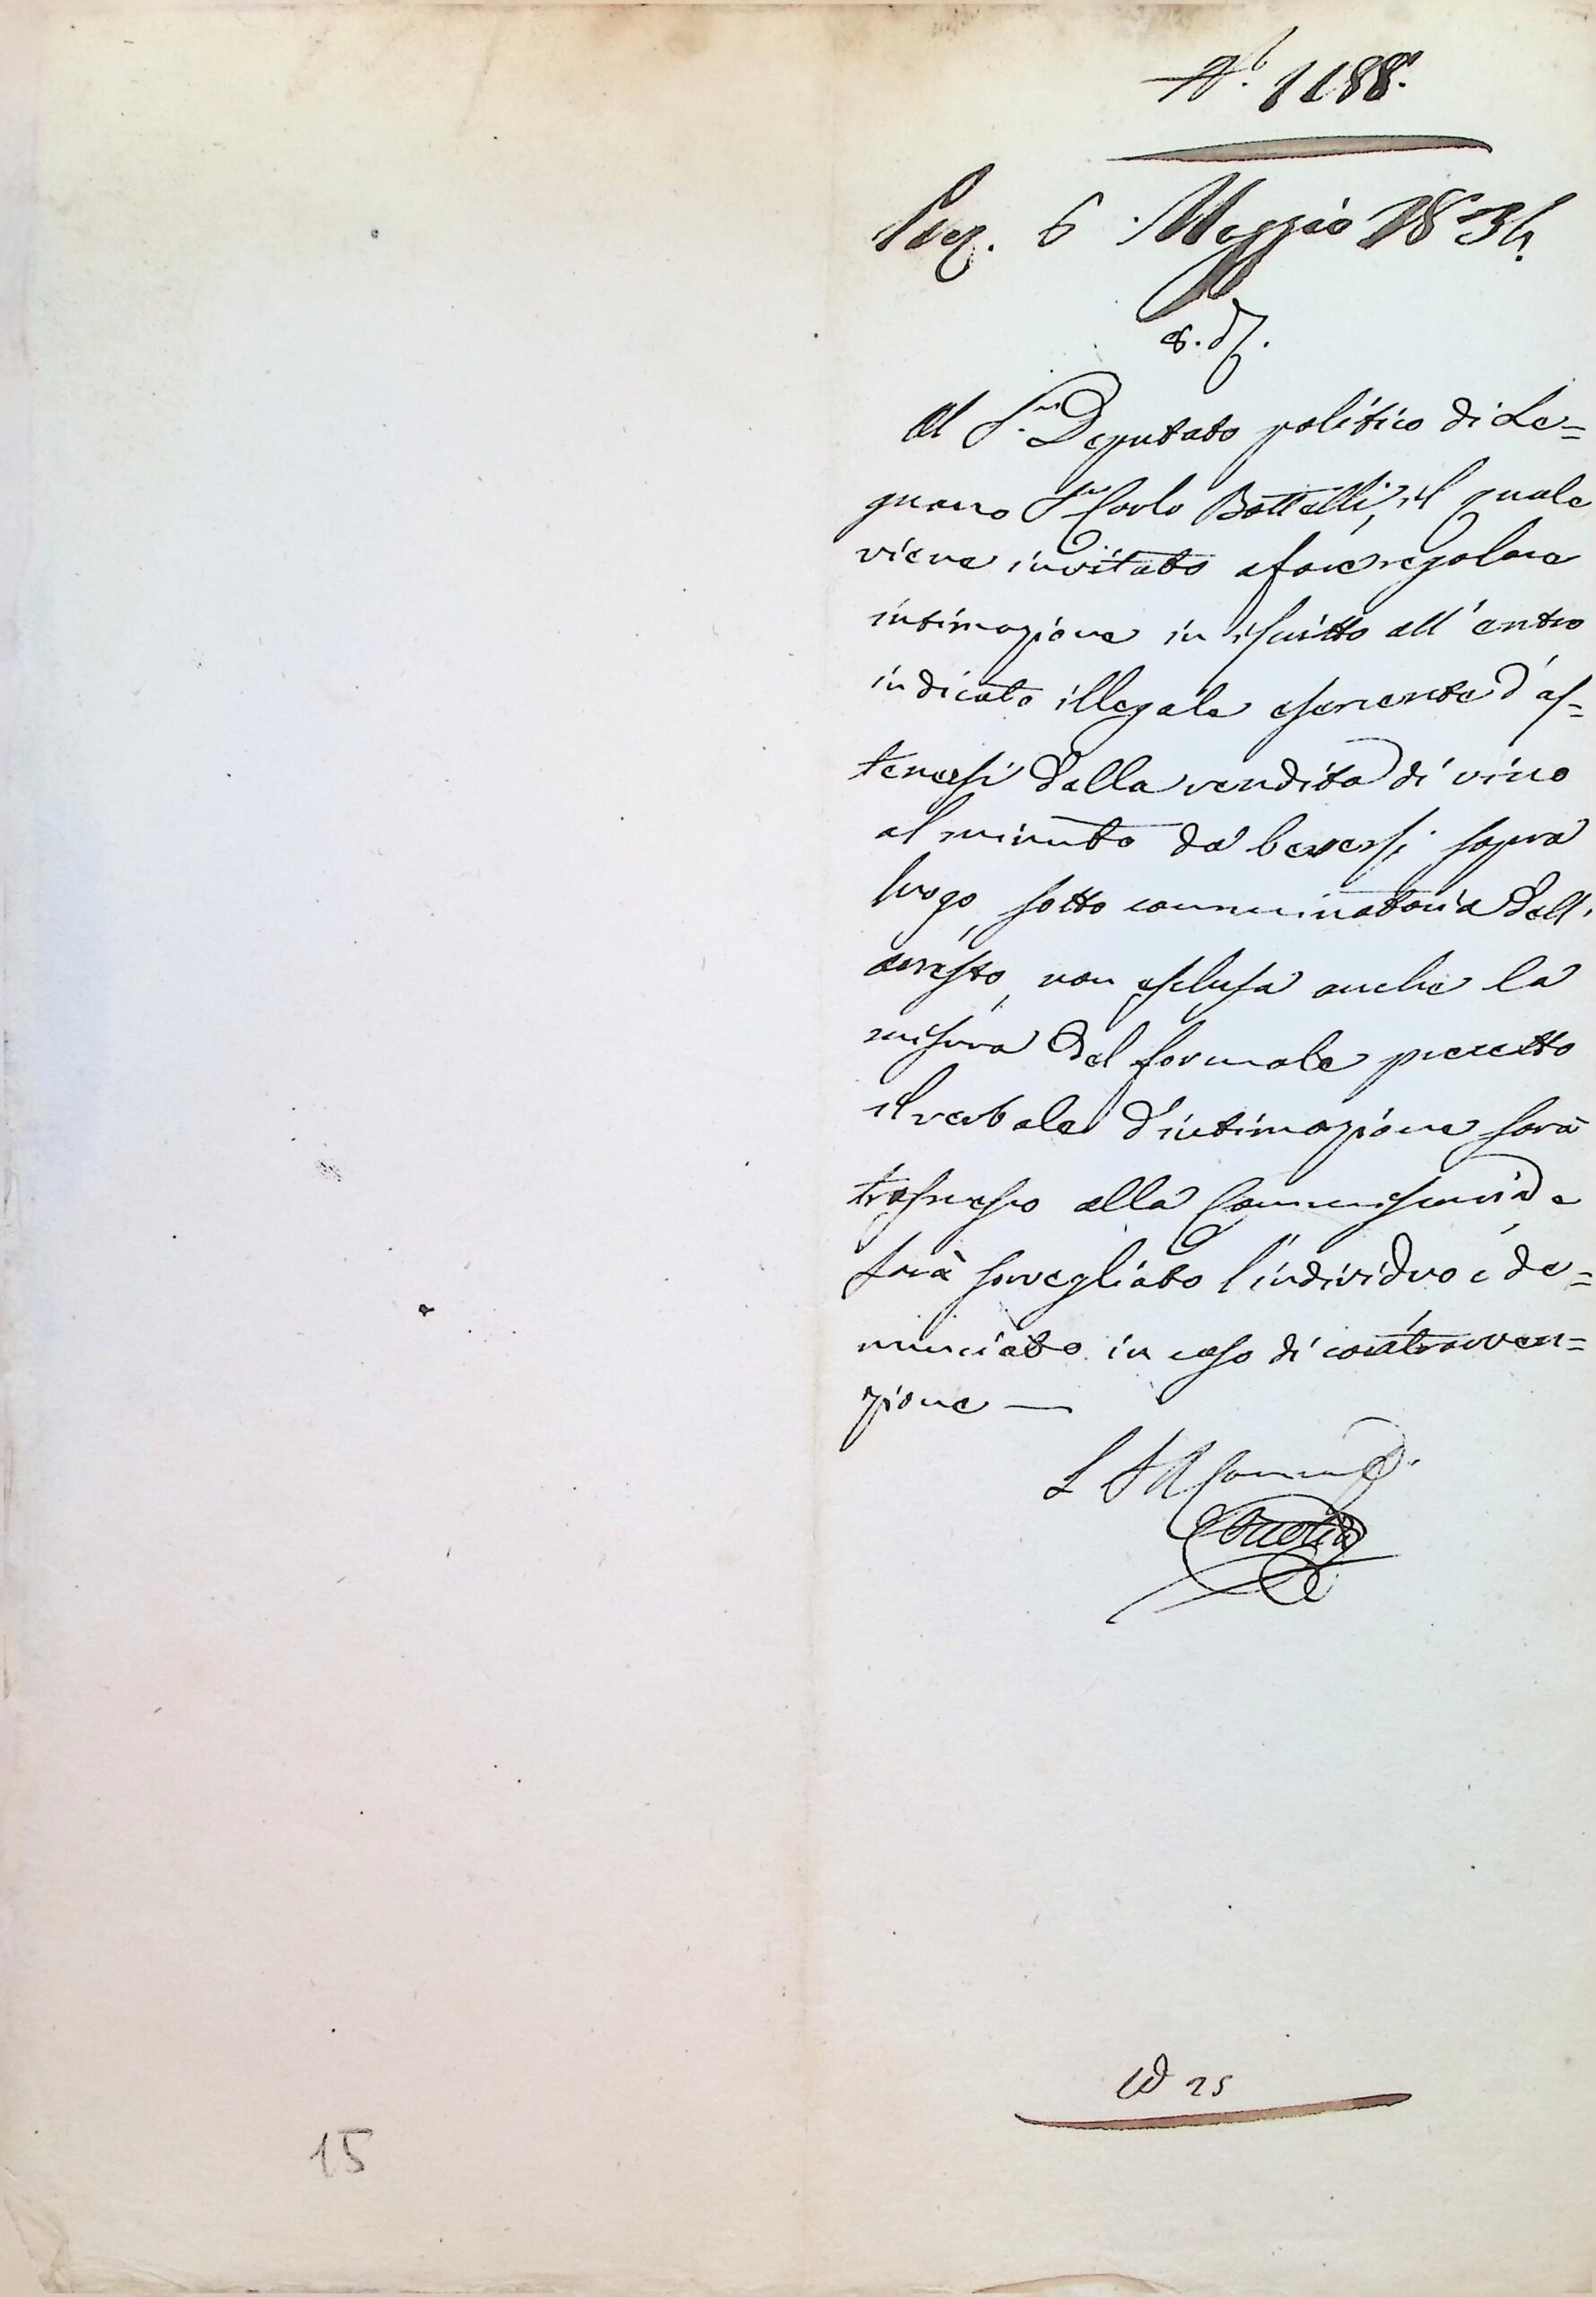 N.° 1188.
Prez. 6 Maggio 1834.
Al S.r Deputato politico di Le=
gnano S.r Carlo Bottelli, il quale
viene invitato a fare regolare
intimazione in iscritto all'entro
indicato illegale esercente d'as=
tenersi dalla vendita di vino
al minuto da beversi sopra
luogo, sotto comminatoria dell'
arresto, non esclusa anche la
misura del formale precetto
il verbale d'intimazione sarà
trasmesso alla Commissaria e
sarà sorvegliato l'individuo e de=
nunciato in caso di contravven=
zione —
25
15